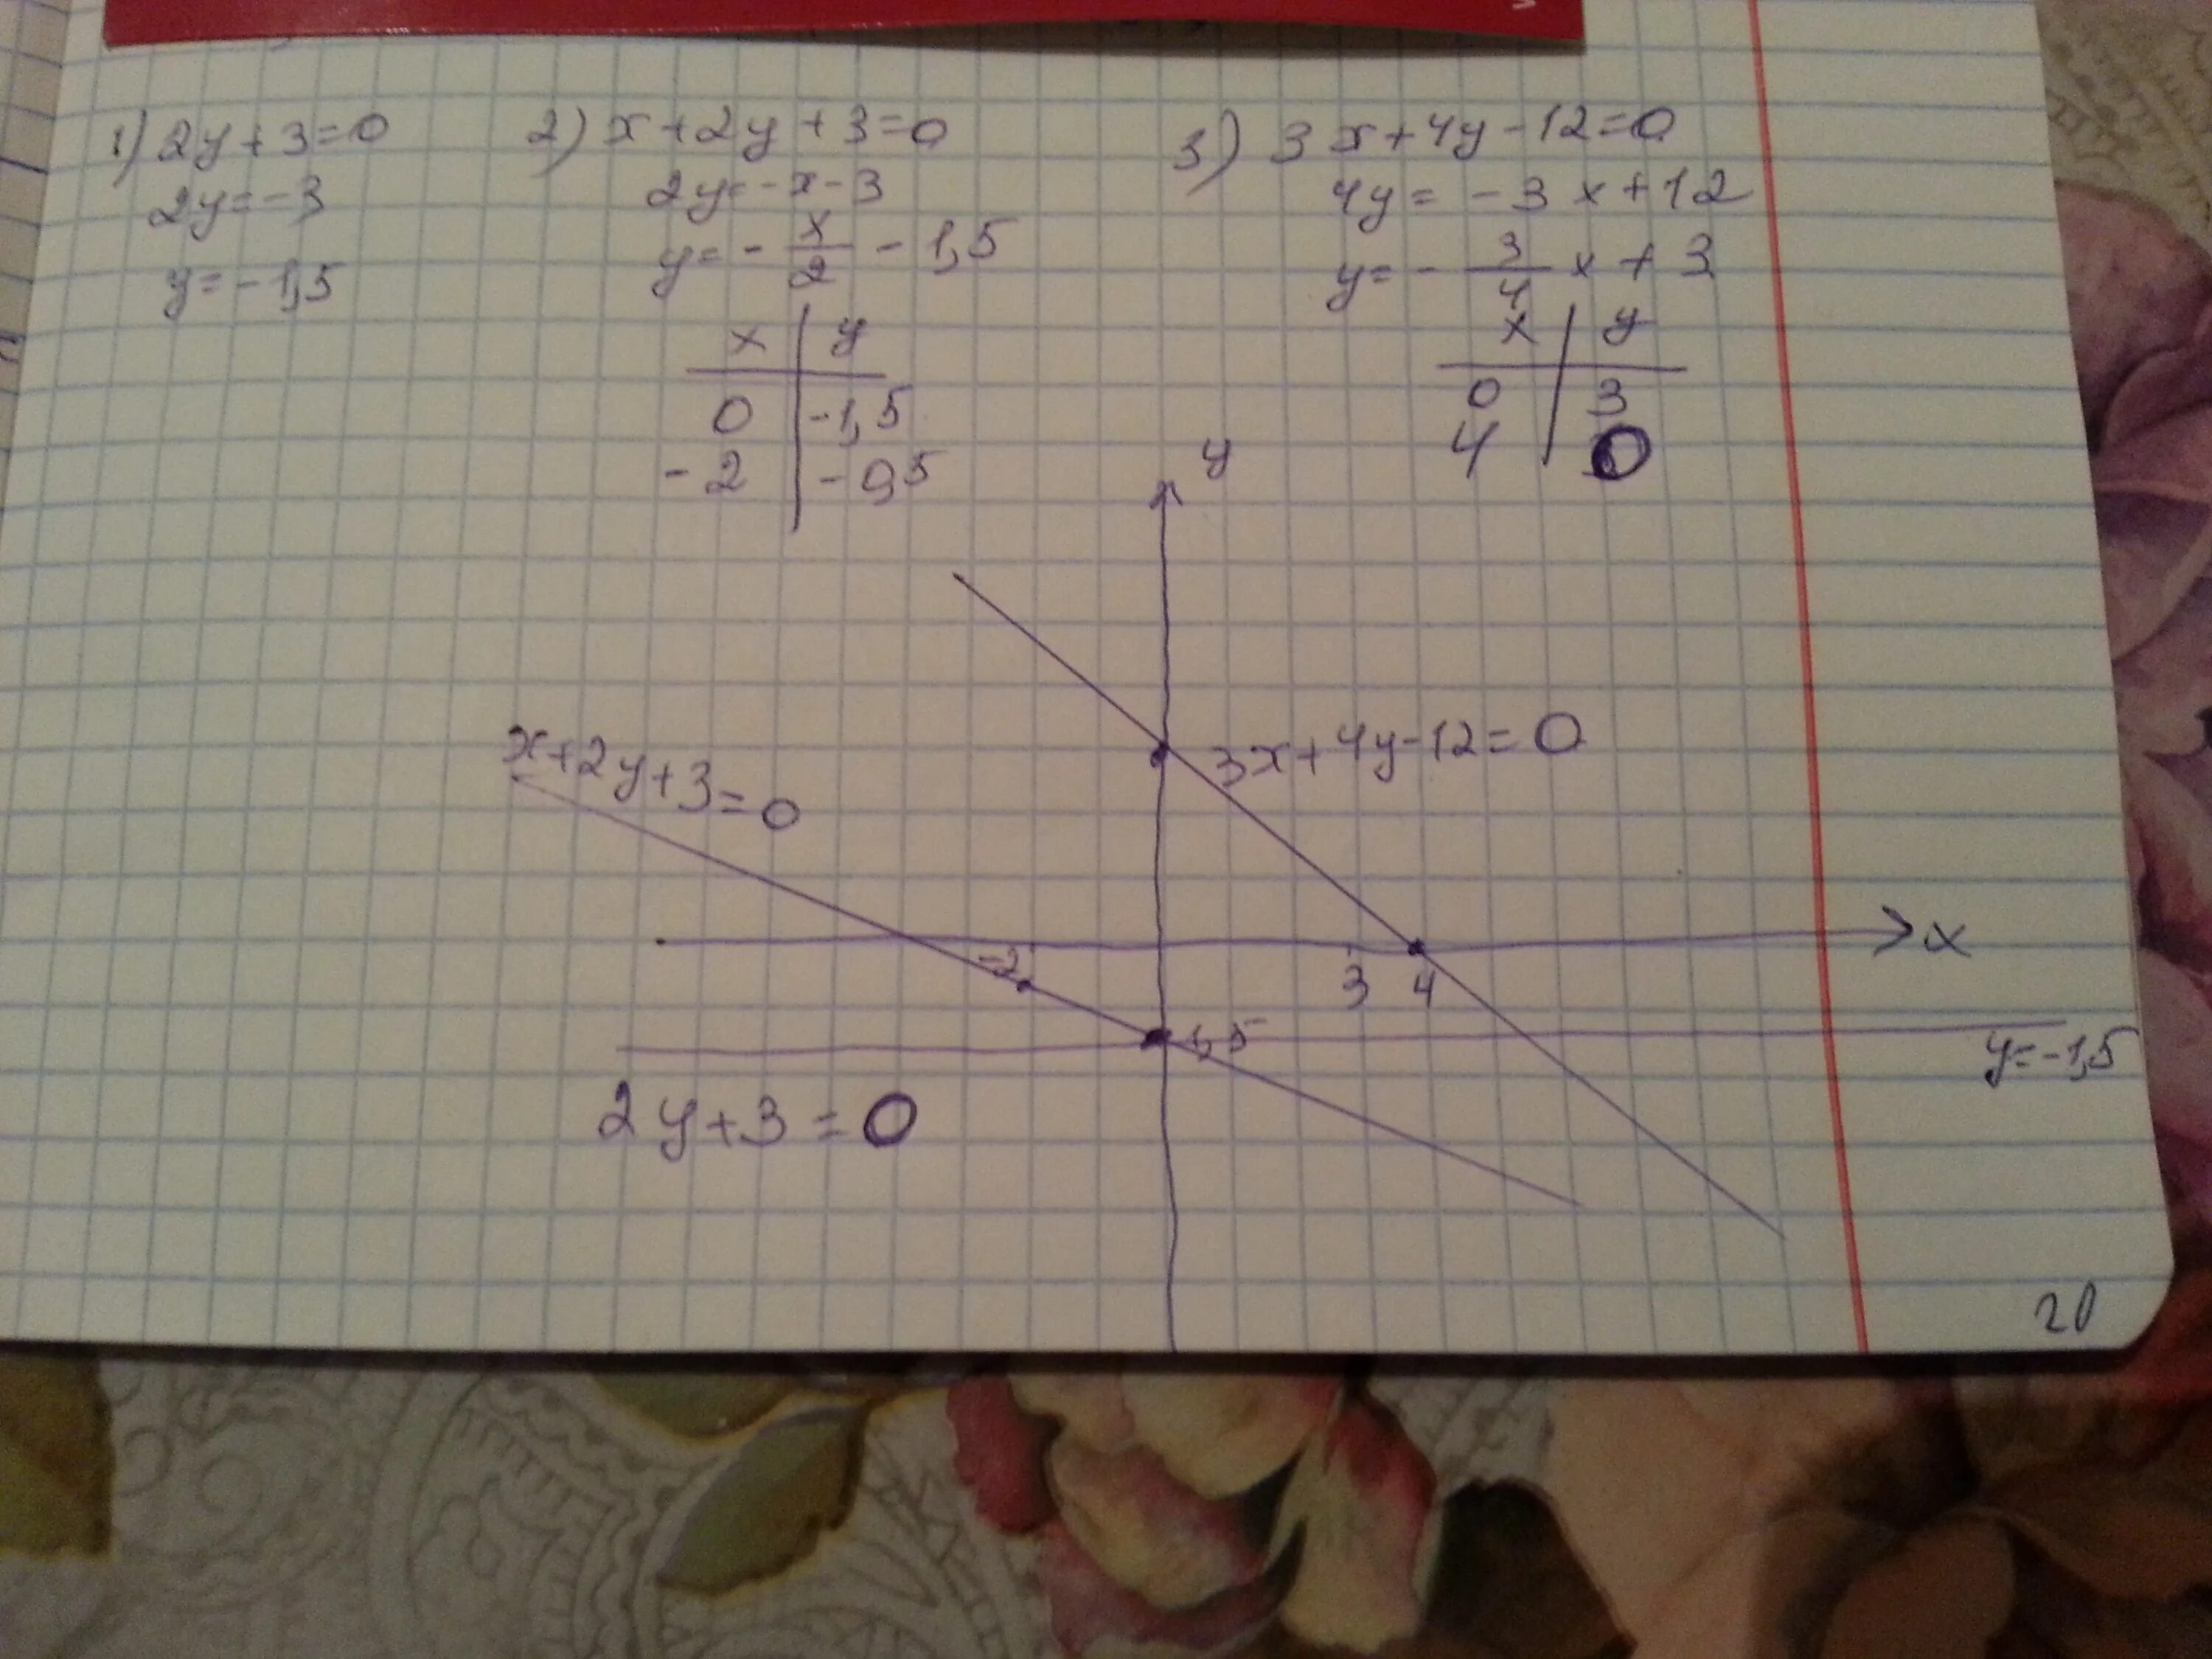 1) 2y+3=0
2y=-3
y=-1,5
2) x+2y+3=0
2y=-x-3
y=-x/2-1,5
x | y
0 | -1,5
-2 | -0,5
3) 3x+4y-12=0
4y=-3x+12
y=-3/4x+3
x | y
0 | 3
4 | 0
y
x+2y+3=0
3x+4y-12=0
x
-2
3 4
1,5
y=-1,5
2y+3=0
20